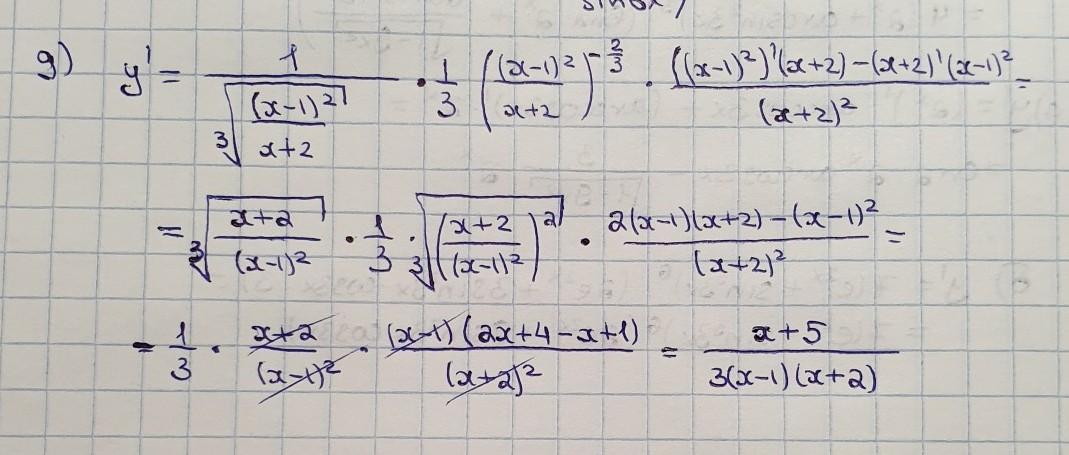 sin6x)
g) y' = 1/∛((x-1)²/(x+2)) · 1/3 ((x-1)²/(x+2))^(-2/3) · (((x-1)²)'(x+2) - (x+2)'(x-1)²)/(x+2)² =
= ∛((x+2)/(x-1)²) · 1/3 · ∛(((x+2)/(x-1)²)²) · (2(x-1)(x+2) - (x-1)²)/(x+2)² =
= 1/3 · (x+2)/(x-1)² · (x-1)(2x+4-x+1)/(x+2)² = (x+5)/(3(x-1)(x+2))